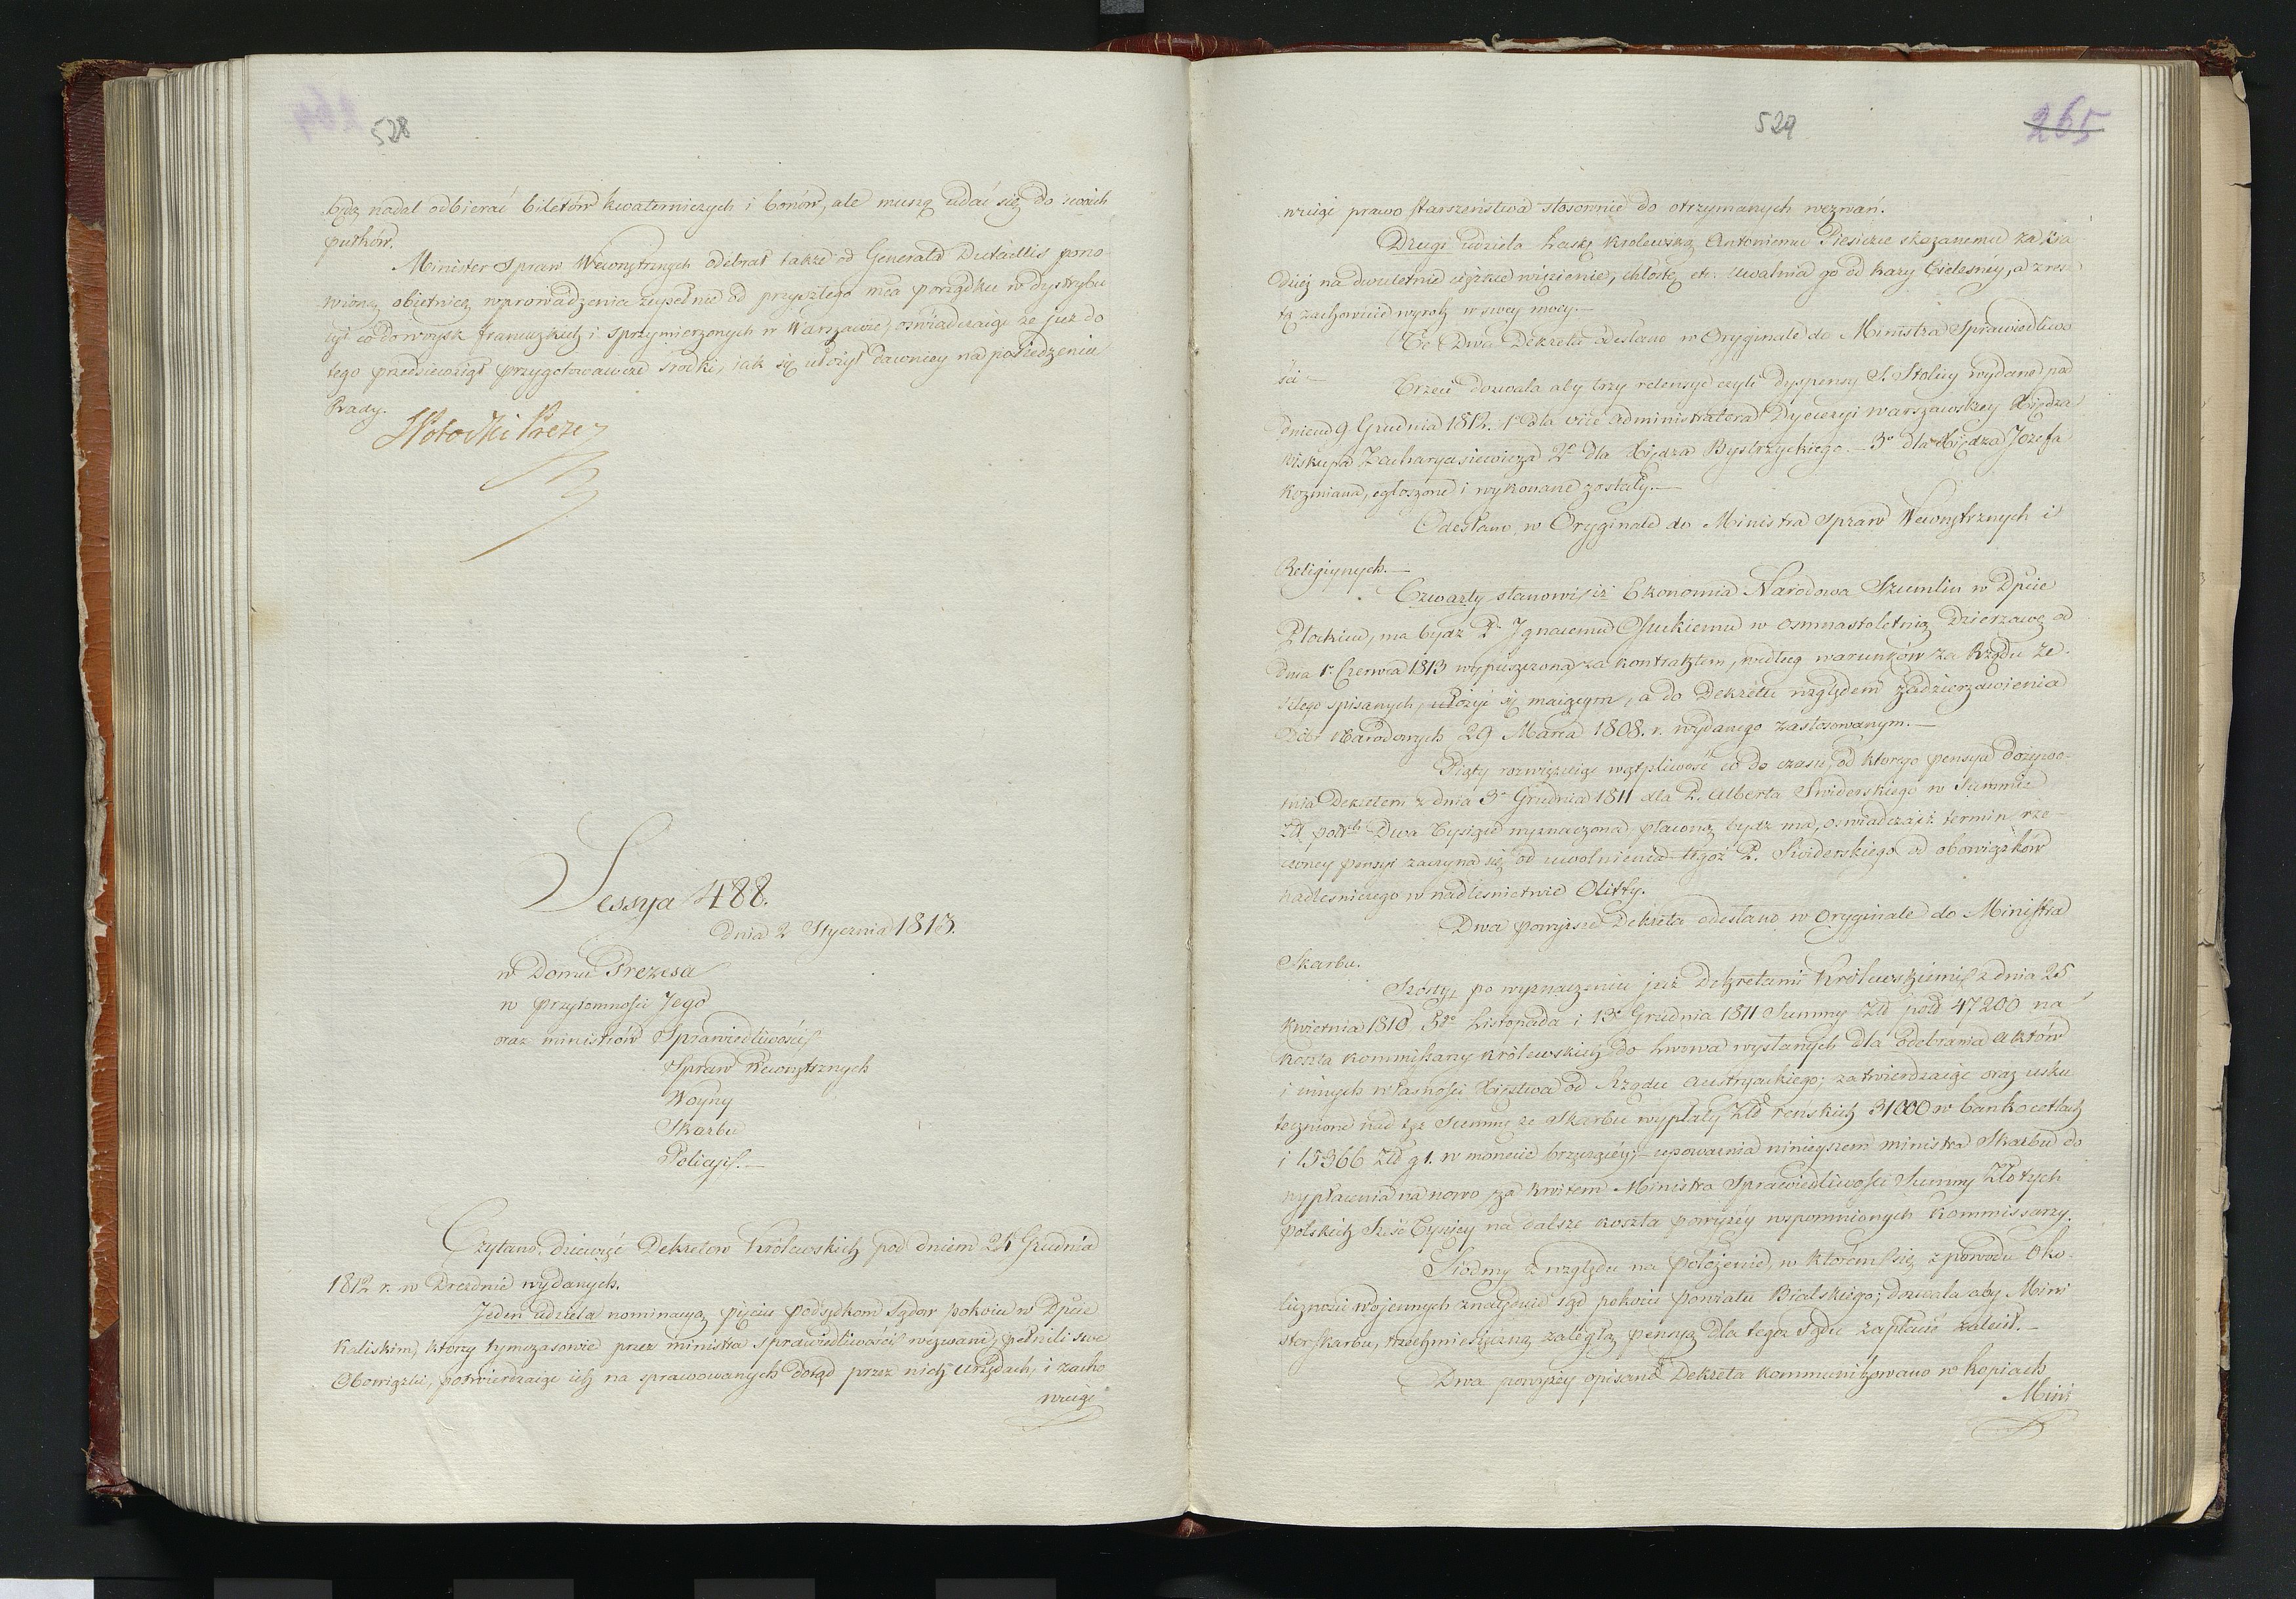 528
będą nadal odbierać biletów kwaterniczych i bonów, ale muszą udać się do swoich
pułków.
Minister Spraw Wewnętrznych odebrał także od Generała Dutaillis pono-
wioną obietnicę wprowadzenia zupełnie od przyszłego mca porządku w dystrybu
cyi co do woysk francuzkich i sprzymierzonych w Warszawie, oświadczaiąc że już do
tego przedsięwziął przygotowawcze środki, iak się ułożył dawniey na posiedzeniu
Rady.
Potocki Prezes
Sessya 488.
Dnia 2 Stycznia 1813.
w Domu Prezesa
w przytomności Jego
oraz ministrów Sprawiedliwości
Spraw Wewnętrznych
Woyny
Skarbu
Policyi.—
Czytano dziewięć Dekretow Królewskich pod dniem 24 Grudnia
1812 r. w Dreźnie wydanych.
Jeden udziela nominacyą pięciu podsędkom Sądow pokoiu w Dpcie
Kaliskim, ktorzy tymczasowie przez ministra Sprawiedliwości wezwani, pełnili swe
Obowiązki, potwierdzaiąc ich na sprawowanych dotąd przez nich Urzędach, i zacho
wuiąc
529
265
wuiąc prawo starszeństwa stosownie do otrzymanych wezwań.
Drugi udziela Łaskę Krolewską Antoniemu Piesicze skazanemu za kra
dzież na dwuletnie ciężkie więzienie, chłostę etc: Uwalnia go od kary Cielesney, a z resz
tą zachowuie wyrok w swey mocy.—
Te Dwa Dekreta odesłano w Oryginale do Ministra Sprawiedliwo
ści —
Trzeci dozwala aby trzy retensye czyli dyspensy S. Stolicy wydane pod
dniem 9 Grudnia 1812. 1° dla vice Administratora Dyecezyi warszawskiey Xiędza
Biskupa Zacharyasiewicza 2° dla Xiędza Bystrzyckiego.— 3° dla Xiędza Jozefa
Koźmiana, ogłoszone i wykonane zostały.—
Odesłano w Oryginale do Ministra Spraw Wewnętrznych i
Religiynych.—
Czwarty stanowi, iż Ekonomia Narodowa Szumlin w Dpcie
Płockim, ma bydź P. Ignacemu w osmnastoletnią Dzierzawę od
dnia 1° Czerwca 1813 wypuszczoną za kontraktem, według warunków za Rządu ze-
szłego spisanych, ułożyć się maiącym, a do Dekretu względem zadzierzawienia
Dóbr Narodowych 29 Marca 1808. r. wydanego zastosowanym.—
Piąty rozwiązuiąc wątpliwość co do czasu, od ktorego pensya dożywo-
tnia Dekretem z dnia 3° Grudnia 1811 dla P. Alberta Swiderskiego w Summie
Zł. pols. Dwa Tysiące wyznaczona, płaconą bydź ma, oswiadcza iż termin rze-
czoney pensyi zaczyna się od uwolnienia tegoż P. Swiderskiego od obowiązków
nadlesniczego w nadlesnictwie Olitty.
Dwa powyższe Dekreta odesłano w Oryginale do Ministra
Skarbu.
Szosty, po wyznaczeniu już Dekretami Królewskiemi z dnia 25
Kwietnia 1810 Listopada i 13° Grudnia 1811 Summy Złł pol 47200 na
koszta kommissarzy królewskich do Lwowa wysłanych dla odebrania aktów
i innych własności Xięstwa od Rządu Austryackiego; zatwierdzaiąc oraz usku
tecznione nad tęż Summę ze Skarbu wypłaty Złł reńskich 31000 w bankocetlach
i 15366 Złł g 1. w monecie brzęczącey,— upoważnia ninieyszem ministra Skarbu do
wypłacenia na nowo za kwitem Ministra Sprawiedliwości Summy Złotych
polskich Sześć Tysięcy na dalsze koszta powyżey wspomnionych Kommissarzy.
Siodmy z względu na położenie, w ktorem się z powodu Oko-
liczności wojennych znayduie sąd pokoiu powiatu Bialskiego; dozwala aby Mini
ster skarbu, trzechmiesięczną zaległą pensyą dla tegoż Sądu zapłacić zalecił.—
Dwa powyżey opisane Dekreta kommunikowano w kopiach
Mini